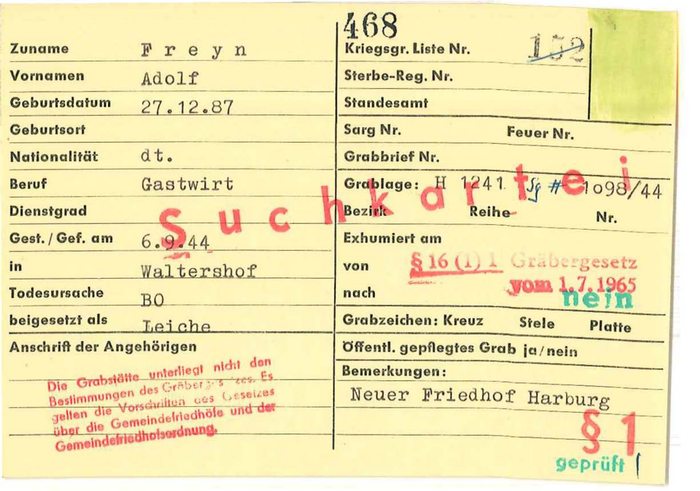 468
Zuname Freyn
Kriegsgr. Liste Nr. 152
Vornamen Adolf
Sterbe-Reg. Nr.
Geburtsdatum 27.12.87
Standesamt
Geburtsort
Sarg Nr. Feuer Nr.
Nationalität dt.
Grabbrief Nr.
Beruf Gastwirt
Grablage: H 1241 Sg # 1098/44
Dienstgrad
Bezirk Reihe Nr.
Suchkartei
Gest./Gef. am 6.9.44
Exhumiert am
in Waltershof
von § 16 (1) 1 Gräbergesetz
vom 1.7.1965
Todesursache BO
nach nein
beigesetzt als Leiche
Grabzeichen: Kreuz Stele Platte
Anschrift der Angehörigen
Öffentl. gepflegtes Grab ja/nein
Bemerkungen:
Neuer Friedhof Harburg
Die Grabstätte unterliegt nicht den
Bestimmungen des Gräbergesetzes. Es
gelten die Vorschriften des Gesetzes
über die Gemeindefriedhöfe und der
Gemeindefriedhofsordnung.
§ 1
geprüft